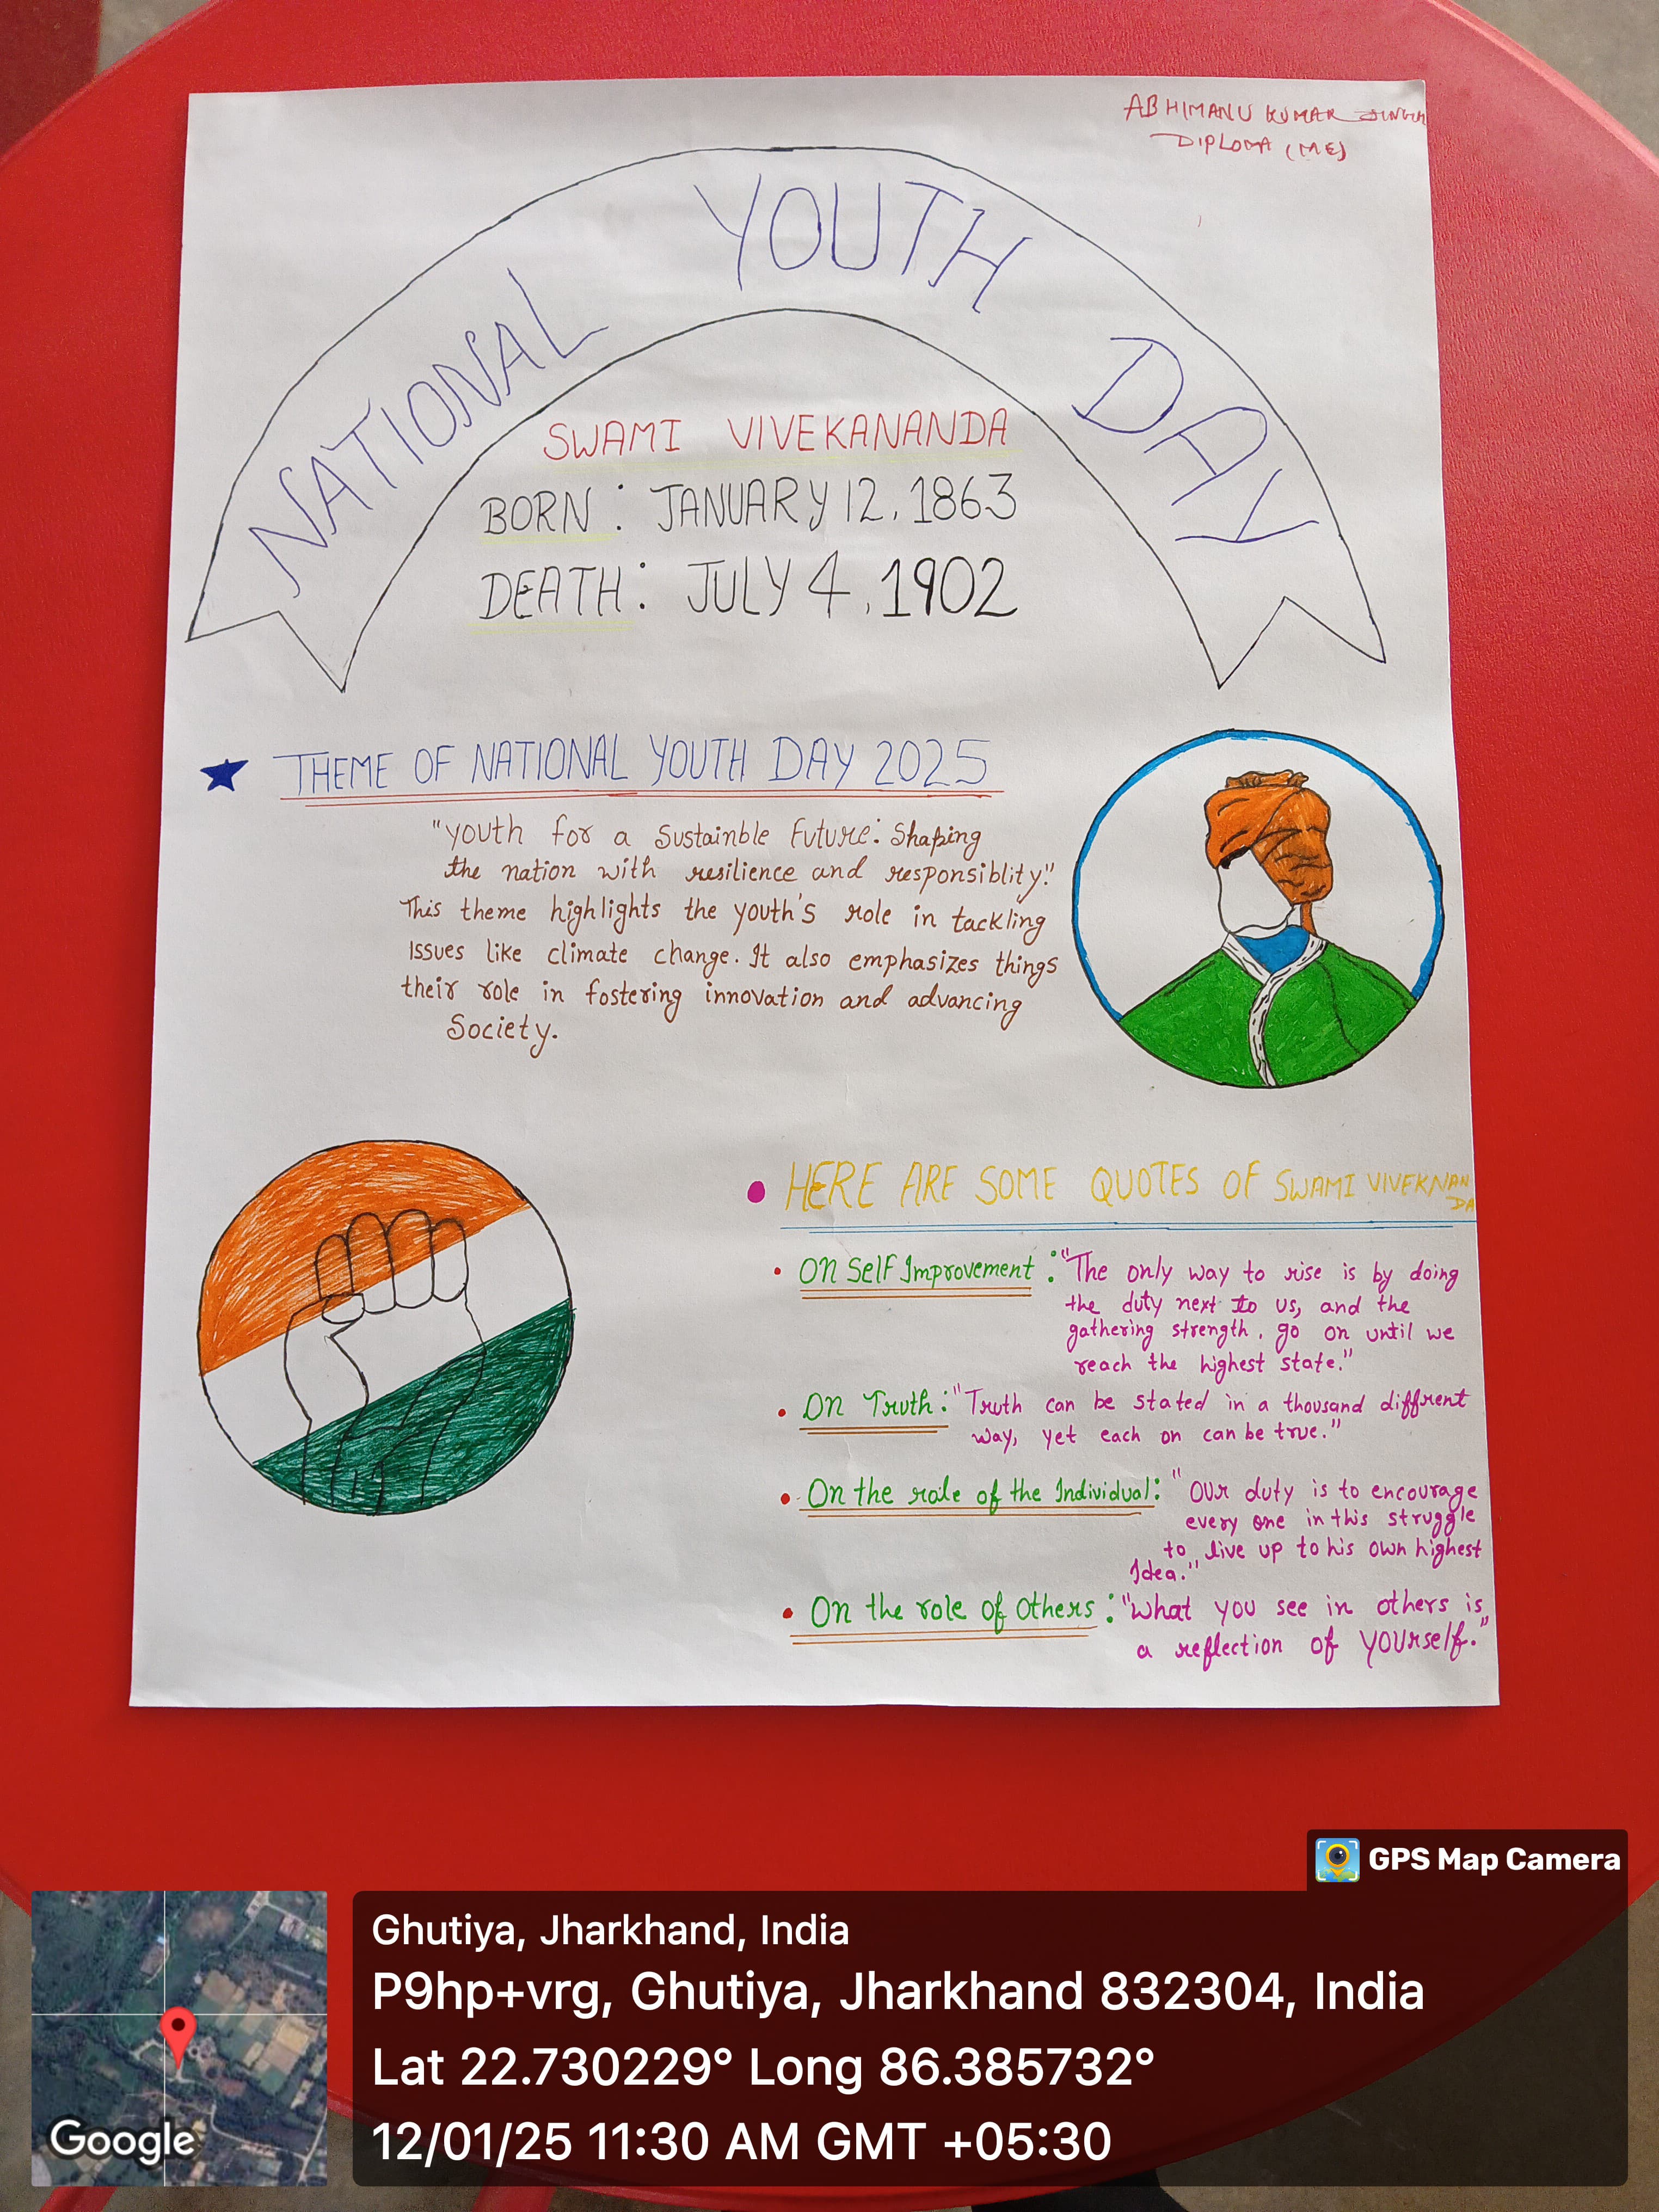 ABHIMANU KUMAR SINGH
DIPLOMA (ME)
NATIONAL YOUTH DAY
SWAMI VIVEKANANDA
BORN : JANUARY 12, 1863
DEATH : JULY 4, 1902
THEME OF NATIONAL YOUTH DAY 2025
"youth for a Sustainble Future: Shaping
the nation with resilience and responsiblity."
This theme highlights the youth's role in tackling
Issues like climate change. It also emphasizes things
their role in fostering innovation and advancing
Society.
HERE ARE SOME QUOTES OF SWAMI VIVEKNAN
DA
On Self Improvement : "The only way to rise is by doing
the duty next to us, and the
gathering strength, go on until we
reach the highest state."
On Truth : "Truth can be stated in a thousand diffrent
way, yet each on can be true."
On the role of the Individual : "Our duty is to encourage
every one in this struggle
to live up to his own highest
Idea."
On the role of others : "What you see in others is
a reflection of yourself."
GPS Map Camera
Ghutiya, Jharkhand, India
P9hp+vrg, Ghutiya, Jharkhand 832304, India
Lat 22.730229° Long 86.385732°
12/01/25 11:30 AM GMT +05:30
Google